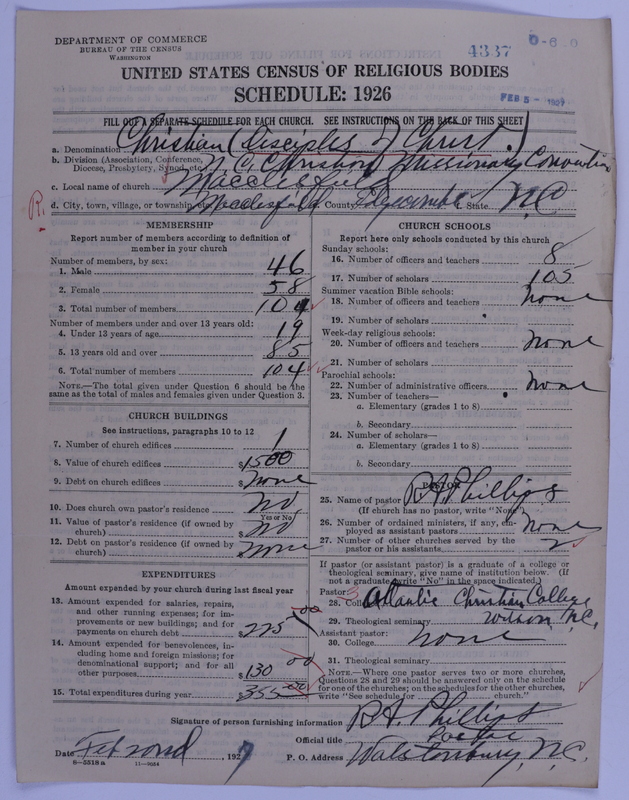 DEPARTMENT OF COMMERCE
BUREAU OF THE CENSUS
WASHINGTON
4337
0-6 0
FEB 5 - 1927
UNITED STATES CENSUS OF RELIGIOUS BODIES
SCHEDULE: 1926
FILL OUT A SEPARATE SCHEDULE FOR EACH CHURCH. SEE INSTRUCTIONS ON THE BACK OF THIS SHEET
a. Denomination Christian (Disciples of Christ.)
b. Division (Association, Conference, Diocese, Presbytery, Synod, etc.) N. C. Christian Missionary Convention
c. Local name of church Macclesfield
R.
d. City, town, village, or township, etc. Macclesfield County Edgecombe State N.C.
MEMBERSHIP
Report number of members according to definition of
member in your church
Number of members, by sex:
1. Male 46
2. Female 58
3. Total number of members 104
Number of members under and over 13 years old:
4. Under 13 years of age 19
5. 13 years old and over 85
6. Total number of members 104
NOTE.—The total given under Question 6 should be the
same as the total of males and females given under Question 3.
CHURCH BUILDINGS
See instructions, paragraphs 10 to 12
7. Number of church edifices 1
8. Value of church edifices $1500
9. Debt on church edifices $none
10. Does church own pastor's residence No
Yes or No
11. Value of pastor's residence (if owned by
church) $No
12. Debt on pastor's residence (if owned by
church) $none
EXPENDITURES
Amount expended by your church during last fiscal year
13. Amount expended for salaries, repairs,
and other running expenses; for im-
provements or new buildings; and for
payments on church debt $225 00
14. Amount expended for benevolences, in-
cluding home and foreign missions; for
denominational support; and for all
other purposes $130 00
15. Total expenditures during year $355.00
CHURCH SCHOOLS
Report here only schools conducted by this church
Sunday schools:
16. Number of officers and teachers 8
17. Number of scholars 105
Summer vacation Bible schools:
18. Number of officers and teachers none
19. Number of scholars
Week-day religious schools:
20. Number of officers and teachers none
21. Number of scholars
Parochial schools:
22. Number of administrative officers none
23. Number of teachers—
a. Elementary (grades 1 to 8)
b. Secondary
24. Number of scholars—
a. Elementary (grades 1 to 8)
b. Secondary
PASTOR
25. Name of pastor R.A. Phillips
(If church has no pastor, write "None")
26. Number of ordained ministers, if any, em-
ployed as assistant pastors none
27. Number of other churches served by the
pastor or his assistants 2
If pastor (or assistant pastor) is a graduate of a college or
theological seminary, give name of institution below. (If
not a graduate write "No" in the space indicated.)
Pastor: 3
28. College Atlantic Christian College
29. Theological seminary Wilson, N.C.
Assistant pastor:
30. College none
31. Theological seminary
NOTE.—Where one pastor serves two or more churches,
Questions 28 and 29 should be answered only on the schedule
for one of the churches; on the schedules for the other churches,
write "See schedule for church."
Signature of person furnishing information R.A. Phillips
Official title Pastor
Date Feb 2nd 1927 P. O. Address Walstonburg, N.C.
8-5518a 11-9034